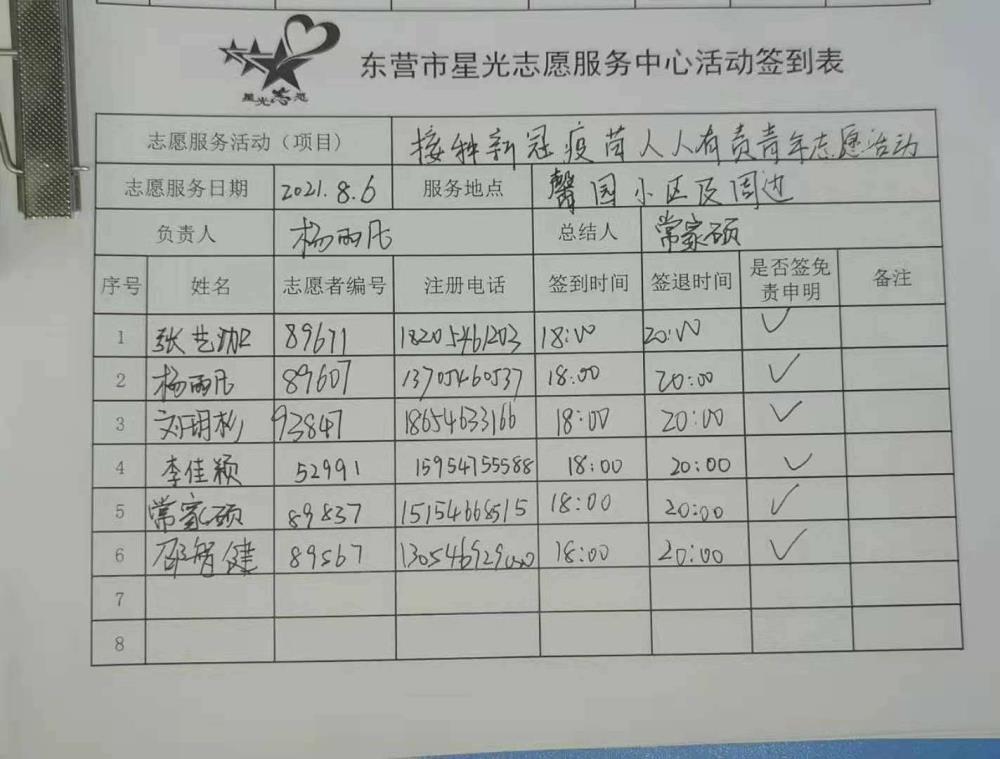 星光志愿
东营市星光志愿服务中心活动签到表
志愿服务活动（项目） 接种新冠疫苗人人有责青年志愿活动
志愿服务日期 2021.8.6 服务地点 馨园小区及周边
负责人 杨雨凡 总结人 常家硕
序号 姓名 志愿者编号 注册电话 签到时间 签退时间 是否签免责申明 备注
1 张艺珈 89671 18205461203 18:00 20:00 ✓
2 杨雨凡 89607 13705460537 18:00 20:00 ✓
3 刘玥杉 93847 18654633166 18:00 20:00 ✓
4 李佳颖 52991 15954755588 18:00 20:00 ✓
5 常家硕 89837 15154668515 18:00 20:00 ✓
6 邵智健 89567 18:00 20:00 ✓
7
8